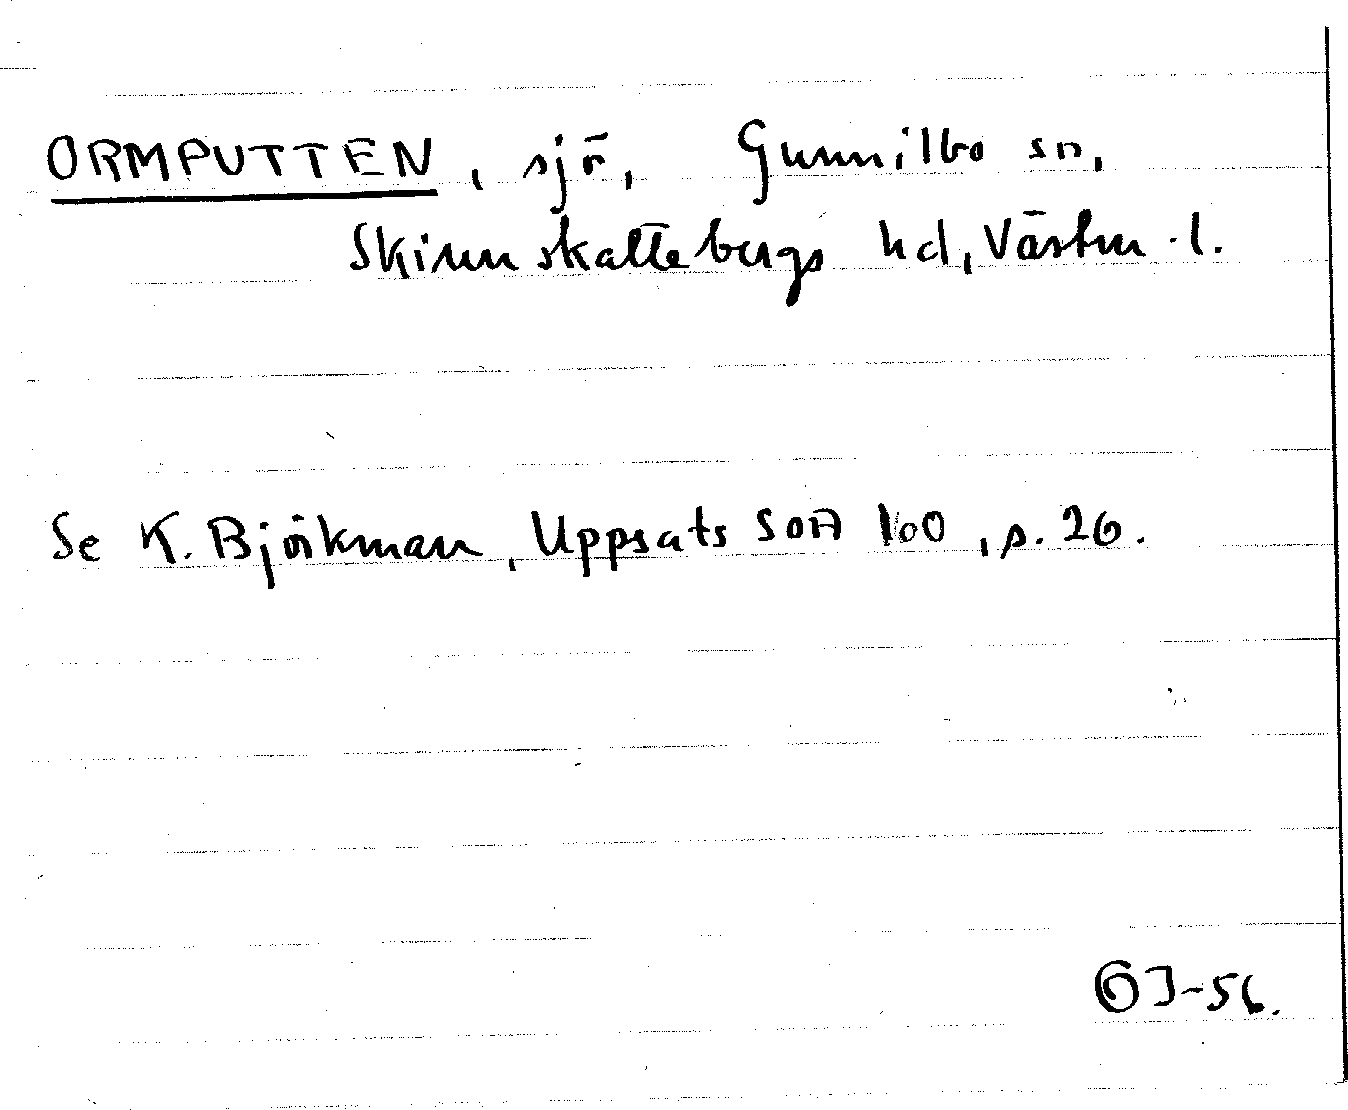 ORMPUTTEN, sjö, Gunnilbo sn,
Skinnskattebergs hd, Västm. l.
Se K. Björkman, Uppsats SOA 160, p. 26.
GJ-56.